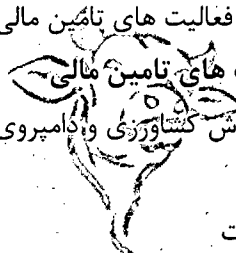 فعالیت های تامین مالی
های تامین مالی
ش کشاورزی و دامپروی
ت